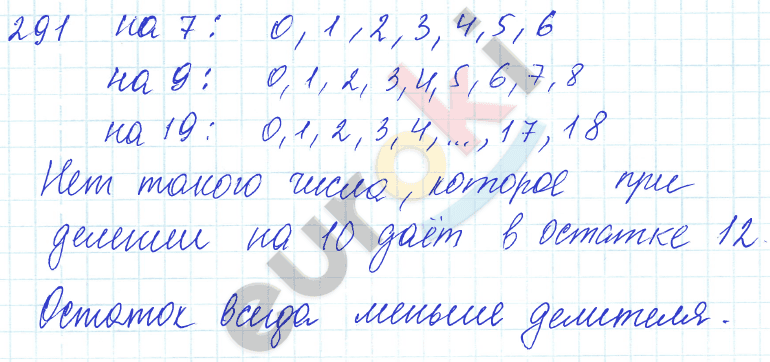 291 на 7: 0, 1, 2, 3, 4, 5, 6
на 9: 0, 1, 2, 3, 4, 5, 6, 7, 8
на 19: 0, 1, 2, 3, 4, ..., 17, 18
Нет такого числа, которое при
делении на 10 даёт в остатке 12.
Остаток всегда меньше делителя.
euroki